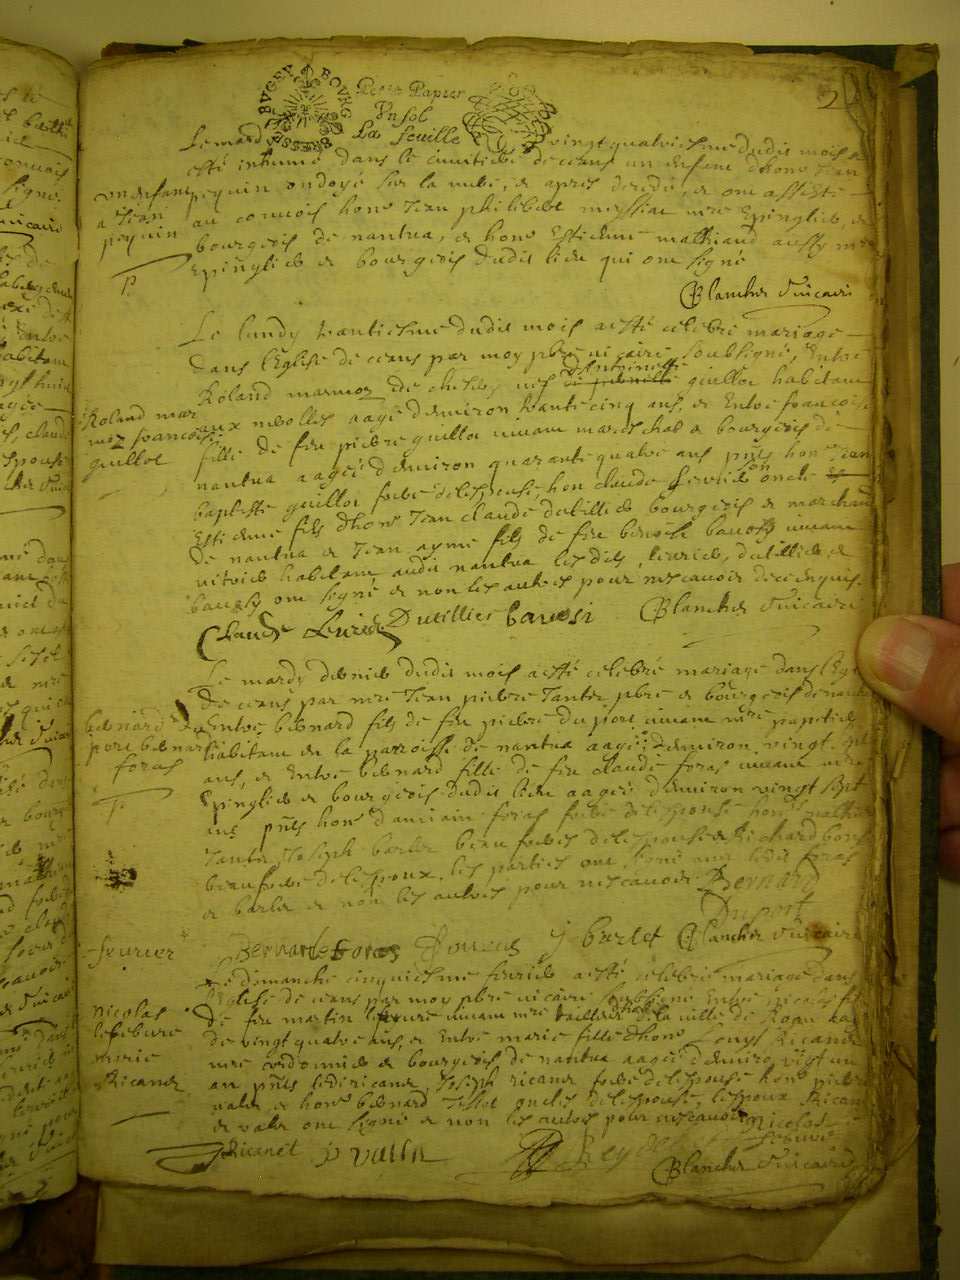 2
BRESSE BVGEY BOVRG
Petit Papier
Un sol
La feuille
Le mardy vingt quatriesme dudit mois a
esté inhumé dans le cimitiere de ceans un enfant d'hon Jean
un enfant
a Jean
pequin
pequin ondoyé sur la mere, et apres decedé, et ont assisté
au convois hono Jean philibert messiat mre Epinglier, et
bourgeois de nantua, et hono Estienne mathiaud aussy mre
Epinglier et bourgeois dudit lieu qui ont signé
Blanchet Vicaire
Le lundy trantiesme dudit mois a esté celebré mariage
dans l'Eglise de ceans par moy pbre vicaire soubsigné, Entre
Roland marmoz de chesley
d'Antoinette
guillot habitant
Roland mar
moz francoise
guillot
aux neyrolles aagé d'environ trante cinq ans, et Entre francoise
fille de feu pierre guillot vivant mareschal et bourgeois de
nantua aagée d'environ quarante quatre ans pnts hon Jean
baptiste guillot frere de l'espouse, hon claude Levrier son oncle
Estienne fils d'hon Jean claude dutillier bourgeois et marchand
de nantua et Jean aymé fils de feu benoist bavozy vivant
vitrier habitant audit nantua lesdits, levrier, dutillier et
bavozy ont signé et non les autres pour ne scavoir de ce enquis.
Claude Levrier Dutillier bavosi Blanchet Vicaire
Le mardy dernier dudit mois a esté celebré mariage dans l'Eglise
de ceans par mre Jean pierre Tantet pbre et bourgeois de nantua
bernard du
port bernarde
foras
Entre bernard fils de feu pierre duport vivant mre papetier
habitant en la parroisse de nantua aagé d'environ vingt
ans, et Entre bernarde fille de feu claude foras vivant mre
Epinglier et bourgeois dudit lieu aagée d'environ vingt sept
ans pnts hono damian foras frere de l'espouse hono
Tantet, Joseph barlet beau frere de l'espouse et Richard
beaufrere de l'espoux, les parties ont signé avec ledit foras
et barlet et non les autres pour ne scavoir
Bernard
Duport
Bernarde foras J barlet Blanchet Vicaire
fevrier
Le dimanche cinquiesme fevrier a esté celebré mariage dans
l'Eglise de ceans par moy pbre vicaire soubsigné Entre nicolas fils
nicolas
lefebure
marie
Ricanet
de feu martin lefevure vivant mre tailleur de la ville de Roan aagé
de vingt quatre ans, et Entre marie fille d'hono Louys Ricanet
mre cordonnier et bourgeois de nantua aagée d'environ vingt un
an pnts ledit ricanet, Joseph ricanet frere de l'espouse hono pierre
valet, et hono bernard Tissot oncles de l'espouse, l'espoux Ricanet
et valet ont signé et non les autres pour ne scavoir
nicolas
lefebure
Ricanet p vallet
Blanchet Vicaire